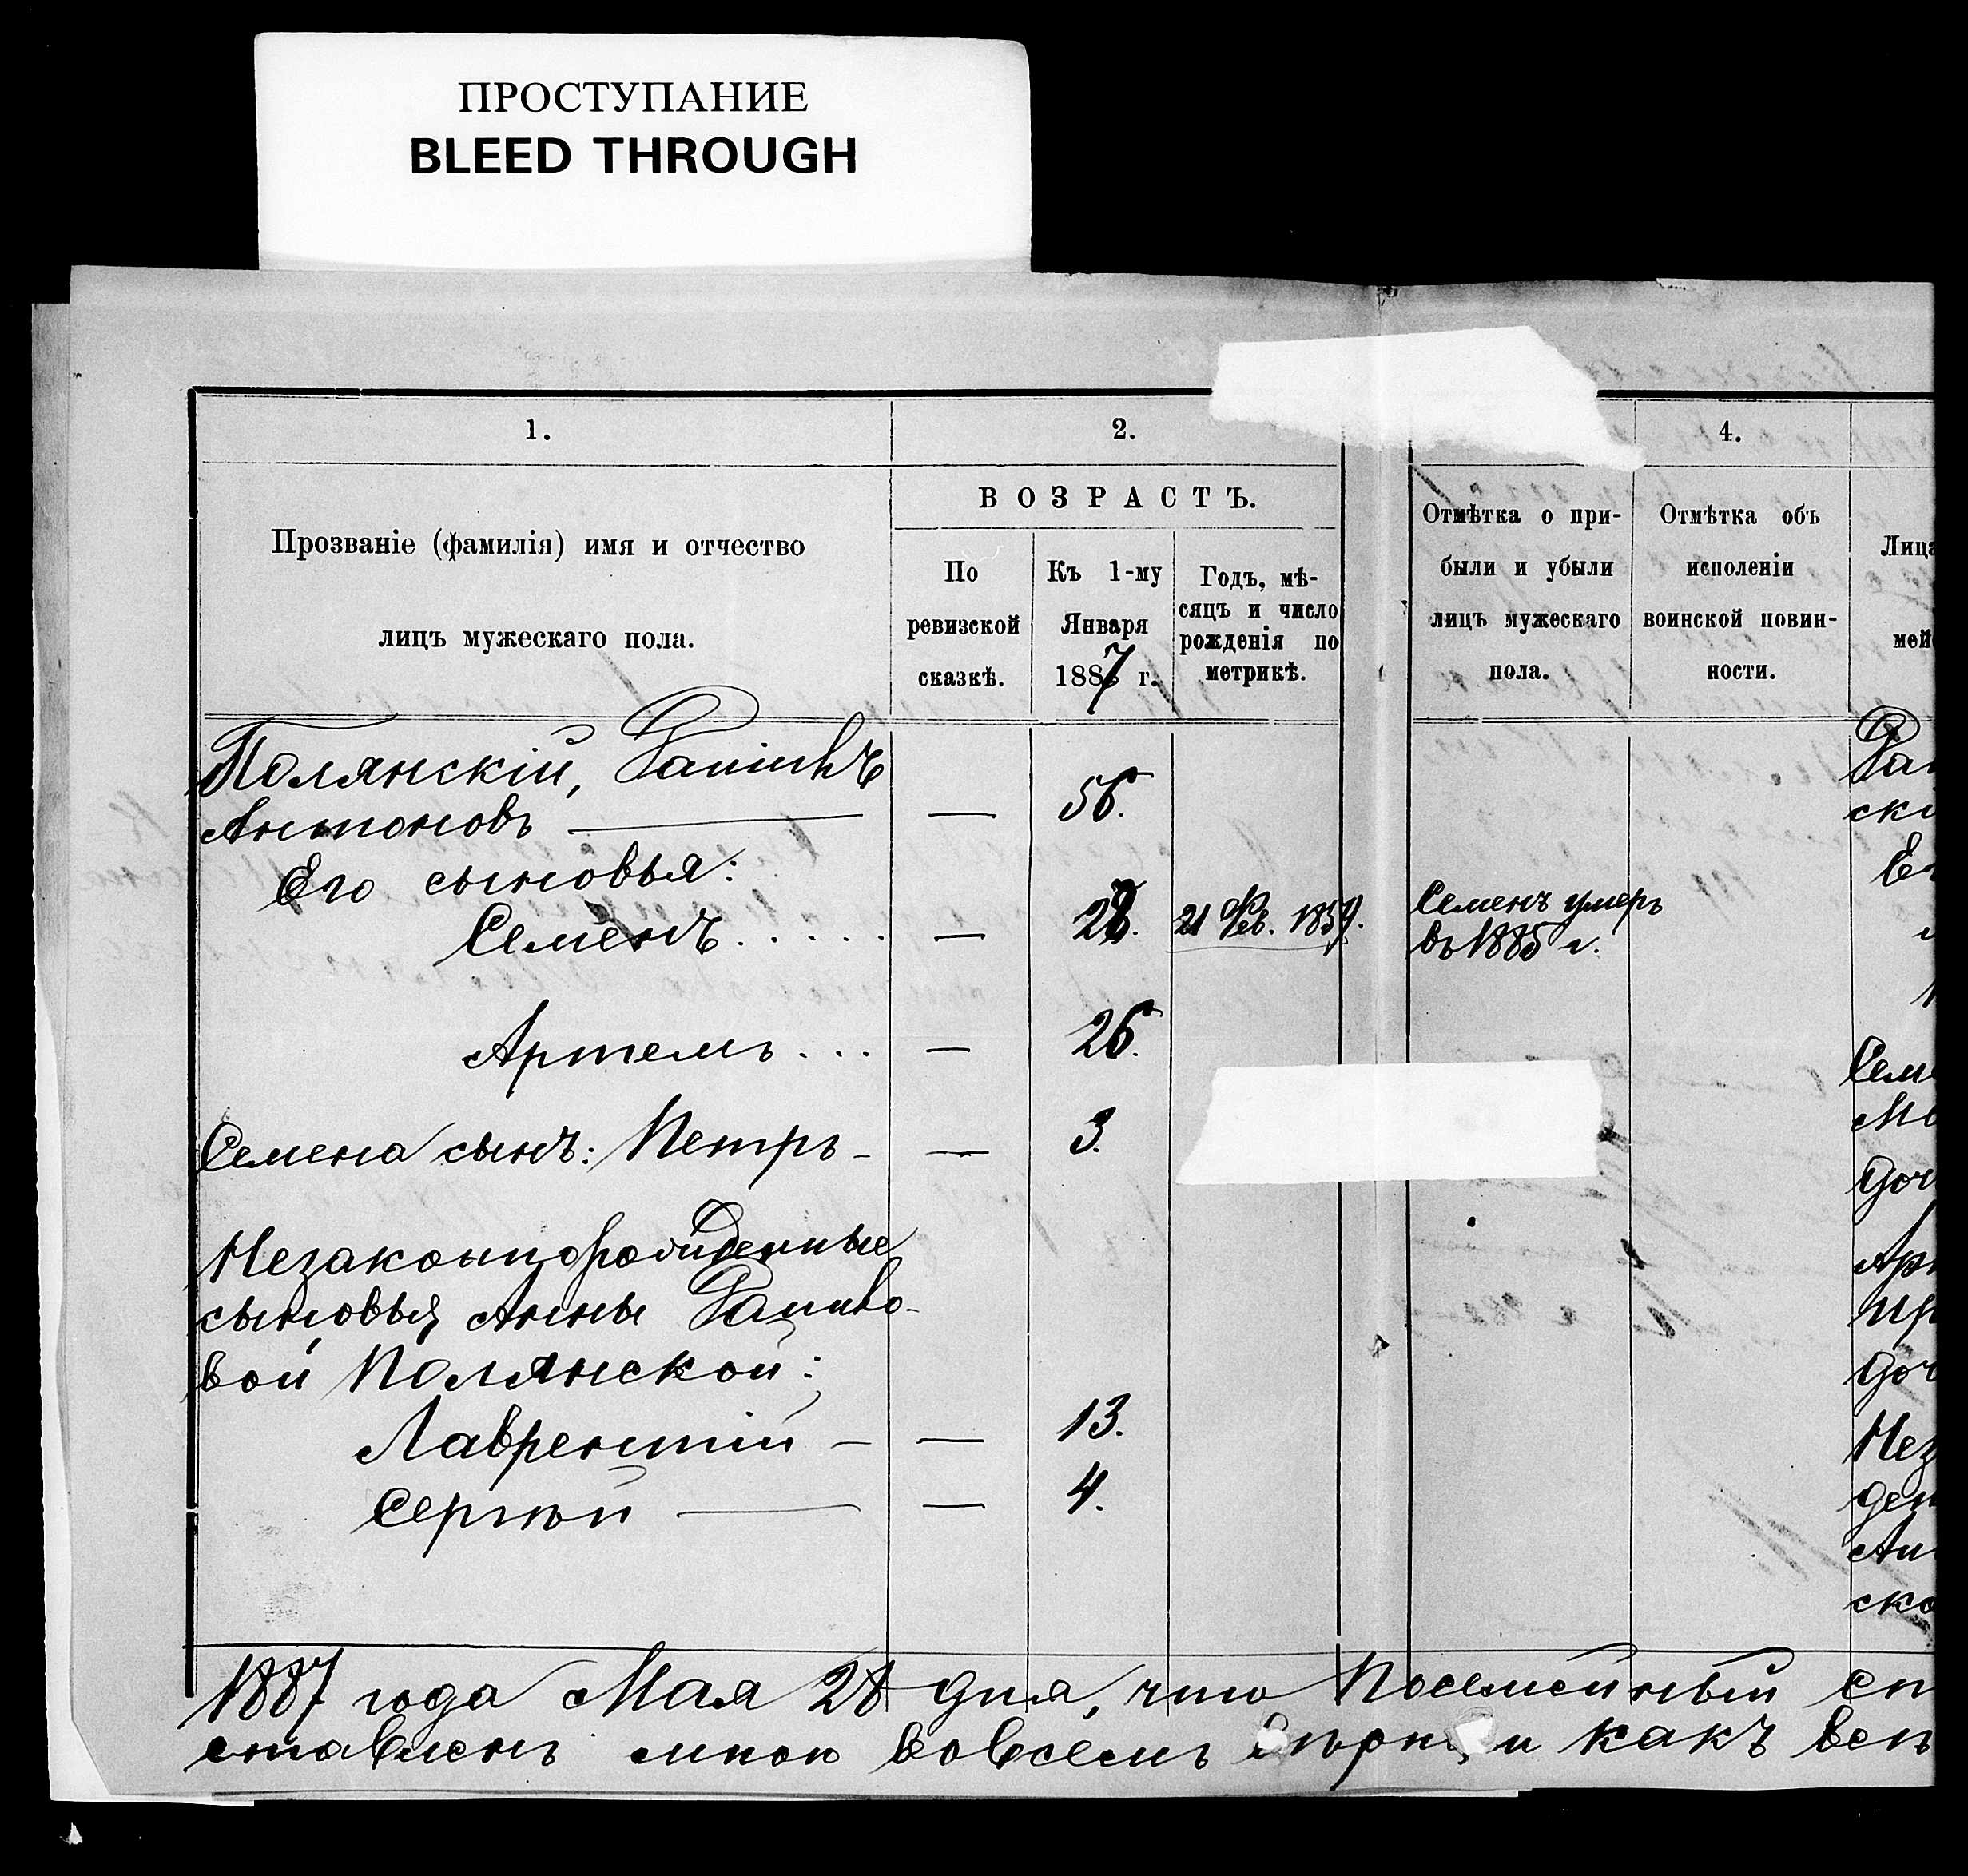 ПРОСТУПАНИЕ
BLEED THROUGH
1.
2.
4.
Прозваніе (фамилія) имя и отчество
лицъ мужескаго пола.
ВОЗРАСТЪ.
По
ревизской
сказкѣ.
Къ 1-му
Января
1887 г.
Годъ, мѣ-
сяцъ и число
рожденія по
метрикѣ.
Отмѣтка о при-
были и убыли
лицъ мужескаго
пола.
Отмѣтка объ
исполеніи
воинской повин-
ности.
Лица
мей
Полянскій,
Антоновъ — — 56.
Его сыновья:
Семенъ..... — 28. 21 Фев. 1859. Семенъ умеръ
въ 1885 г.
Артемъ... — 26.
Семена сынъ: Петръ — — 3.
Незаконнорожденные
сыновья Анны
вой Полянской:
Лаврентій — — 13.
Сергѣй — — 4.
ски
Ег
Семе
Мо
доч
Арт
пр
доч
Нез
ден
Ан
ско
1887 года Мая 28 дня, что Посемейный сп
ставленъ мною вовсемъ и какъ всѣ